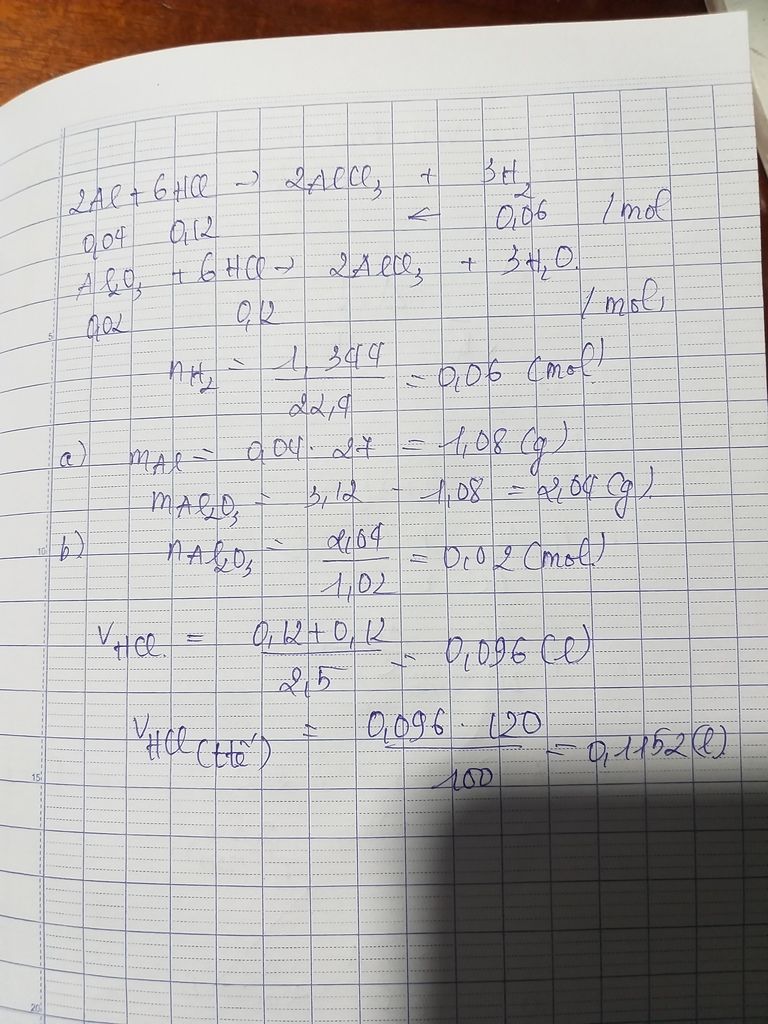 2Al + 6HCl → 2AlCl₃ + 3H₂
0,04 0,12 ← 0,06 /mol
Al₂O₃ + 6HCl → 2AlCl₃ + 3H₂O.
0,02 0,12 /mol,
nH₂ = 1,344/22,4 = 0,06 (mol)
a) mAl = 0,04 . 27 = 1,08 (g)
mAl₂O₃ = 3,12 - 1,08 = 2,04 (g)
b) nAl₂O₃ = 2,04/1,02 = 0,02 (mol)
VHCl. = 0,12 + 0,12/2,5 = 0,096 (l)
VHCl (ttế) = 0,096 . 120/100 = 0,1152 (l)
5
10
15
20